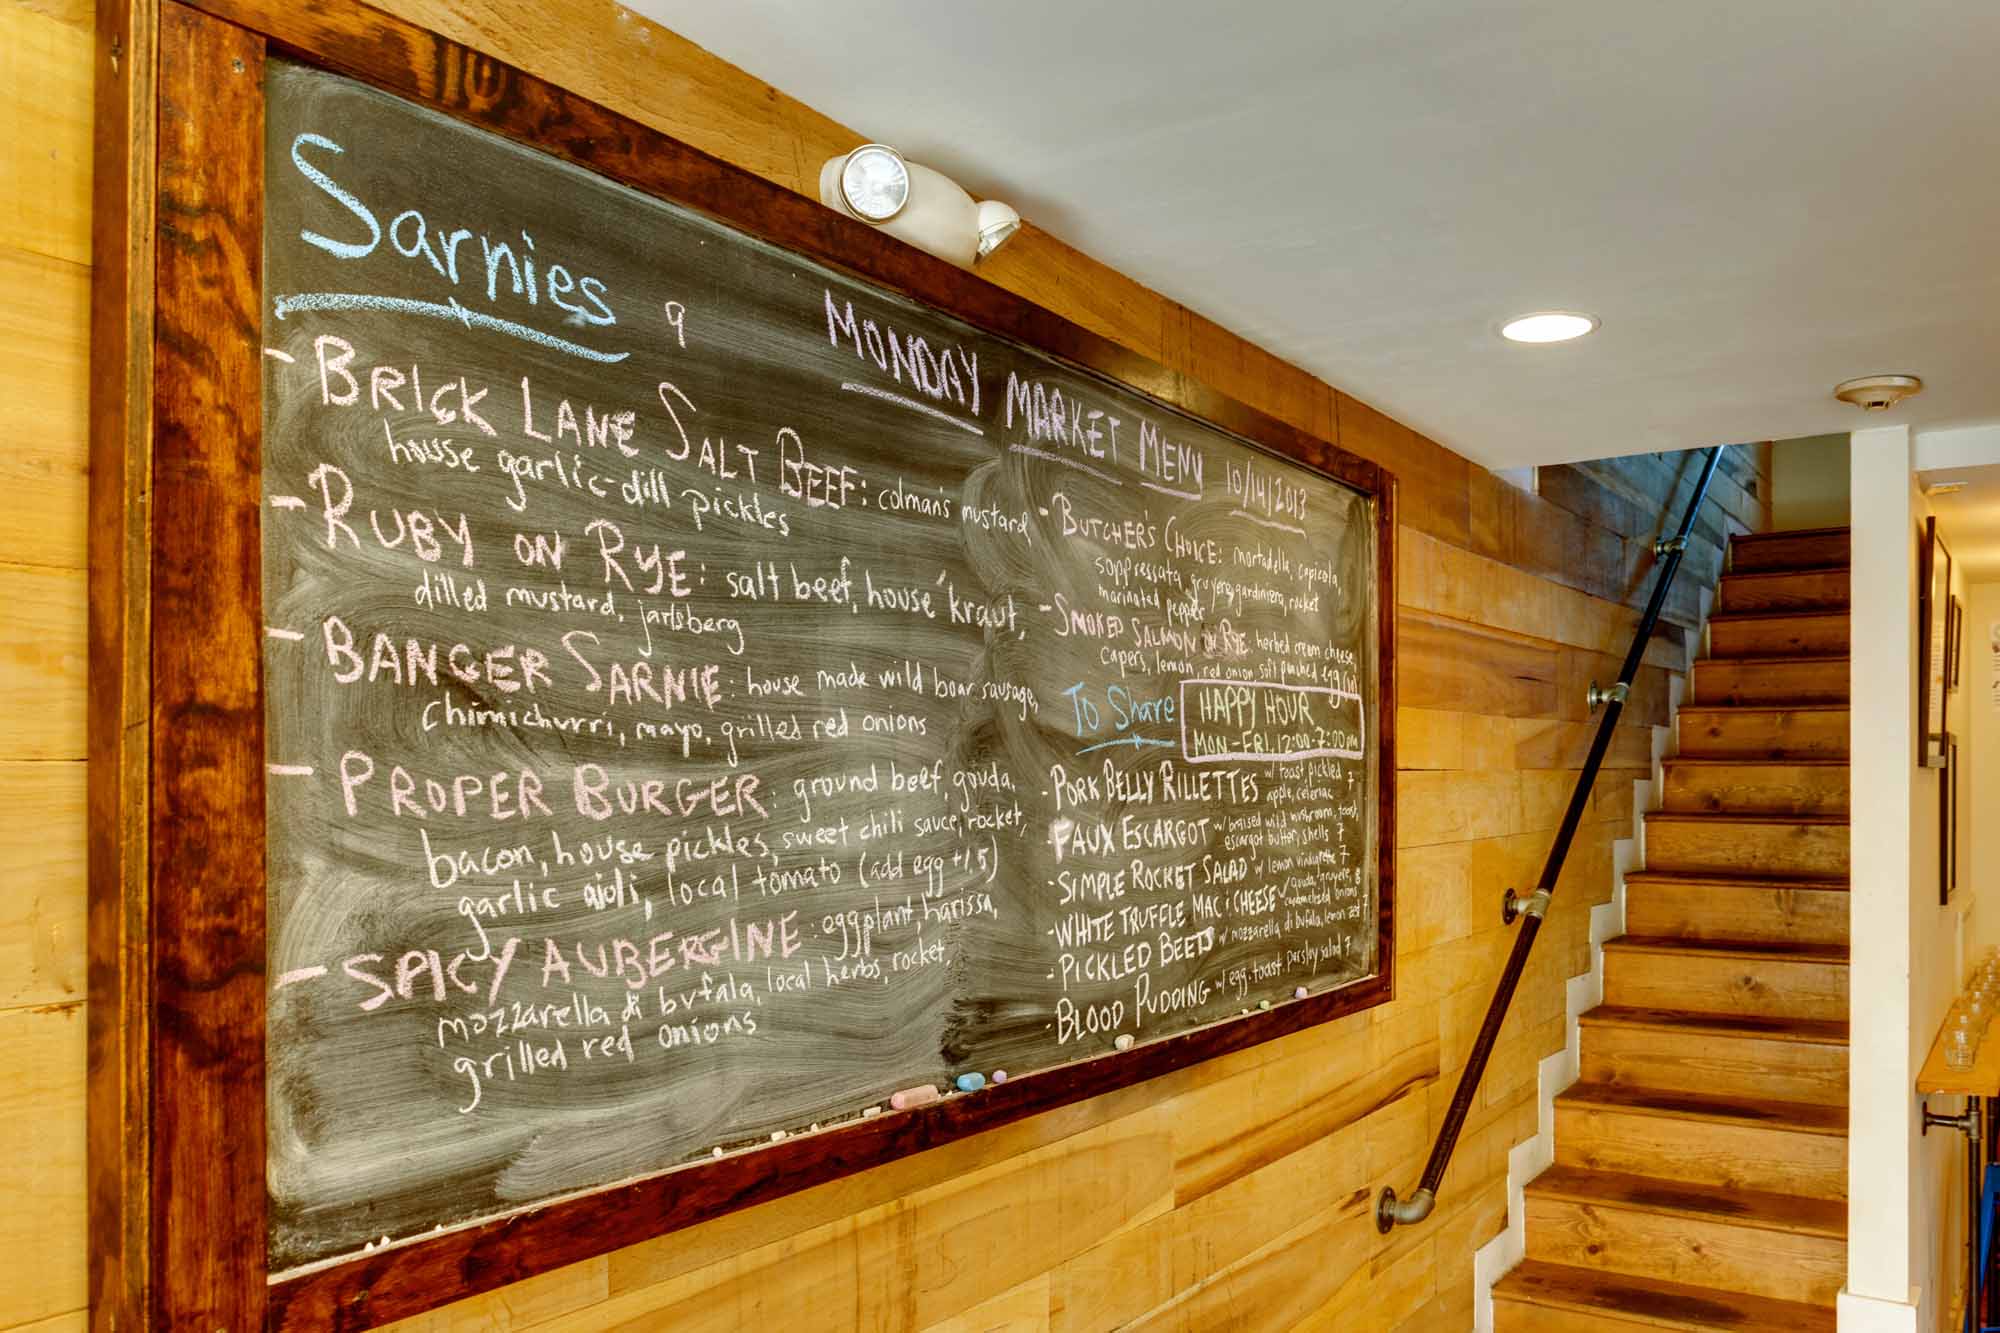 Sarnies 9
- BRICK LANE SALT BEEF: colman's mustard
house garlic-dill pickles
- RUBY ON RYE: salt beef, house 'kraut,
dilled mustard, jarlsberg
- BANGER SARNIE: house made wild boar sausage,
chimichurri, mayo, grilled red onions
- PROPER BURGER: ground beef, gouda,
bacon, house pickles, sweet chili sauce, rocket,
garlic aioli, local tomato (add egg +1.5)
- SPICY AUBERGINE: eggplant, harissa,
mozzarella di bufala, local herbs, rocket,
grilled red onions
MONDAY MARKET MENU 10/14/2013
- BUTCHER'S CHOICE: mortadella, capicola,
soppressata, gruyere, gardiniera, rocket
marinated pepper
- SMOKED SALMON ON RYE: herbed cream cheese,
capers, lemon, red onion, soft poached egg
To Share
HAPPY HOUR
MON-FRI, 12:00-7:00pm
- PORK BELLY RILLETTES w/ toast, pickled
apple, celeriac 7
- FAUX ESCARGOT w/ braised wild mushroom, toast,
escargot butter, shells 7
- SIMPLE ROCKET SALAD w/ lemon vinaigrette 7
- WHITE TRUFFLE MAC & CHEESE w/ gouda, gruyere, &
caramelized onions
- PICKLED BEETS w/ mozzarella di bufala, lemon zest 7
- BLOOD PUDDING w/ egg, toast, parsley salad 7